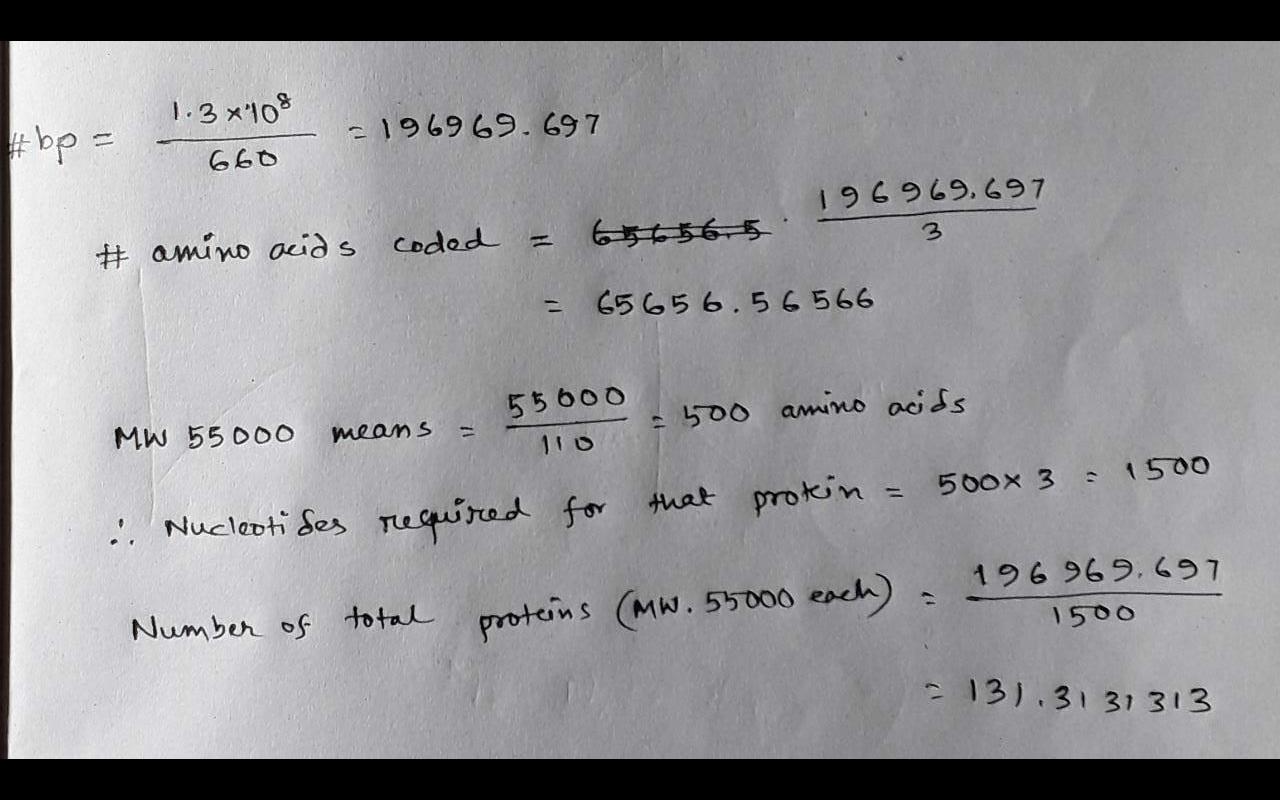 #bp = 1.3 × 10⁸ / 660 = 196969.697
# amino acids coded = 65656.5 . 196969.697 / 3
= 65656.56566
MW 55000 means = 55000 / 110 = 500 amino acids
∴ Nucleotides required for that protein = 500 × 3 = 1500
Number of total proteins (MW. 55000 each) = 196969.697 / 1500
= 131.3131313